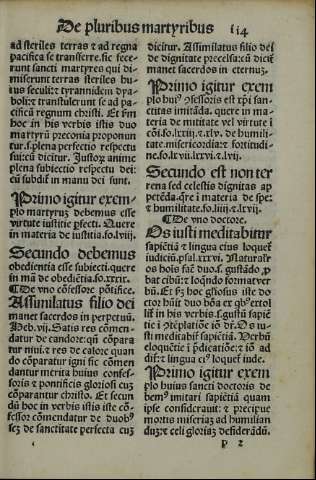 De pluribus martyribus
114
ad steriles terras & ad regna
pacifica se transferre. sic fece-
runt sancti martyres qui di-
miserunt terras steriles hu-
ius seculi: & tyrannidem dya-
boli: & transtulerunt se ad pa-
cificā regnum christi. Et īm̄
hoc in his verbis istis duo
martyrū preconia proponun
tur. s. plena perfectio respectu
sui: cū dicitur. Iustorū anime
plena subiectio respectu dei:
cū subdit̄ in manu dei sunt.
Primo igitur exem-
plo martyrū debemus esse
virtute iustitie pfecti. Quere
in materia de iustitia. fo. lviij.
Secundo debemus
obedientia esse subiecti. quere
in mā de obediētia. fo. xxix.
¶ De vno cōfessore pōtifice.
Assimilatus filio dei
manet sacerdos in perpetuū.
Heb. vij. Satis res cōmen-
datur de candore: qn̄ cōpara
tur niui/ & res de calore quan
do cōparatur igni sic cōmen
dantur merita huius confes-
soris & pontificis gloriosi cuz
cōparantur christo. Et secun
dū hoc in verbis istis iste cō-
fessor cōmendatur de duobꝰ
sez de sanctitate perfecta cuz
dicitur. Assimilatus filio dei
de dignitate precelsa: cū dicit̄
manet sacerdos in eternuz.
Primo igitur exem
plo huiꝰ ꝯfessoris est xp̄i san-
ctitas imitāda. quere in ma-
teria de mititate vel virtute t̄
cōi. fo. lxiij. & .xlv. de humili-
tate. misericordia: & fortitudi-
ne. fo. lx vij. lxxvi. & lvij.
Secundo est non ter
rena sed celestis dignitas ap
petēda. q̄re ī materia de spe:
& humilitate. fo. liiij & lxvij.
¶ De vno doctore.
Os iusti meditabitur
sapiētiā & lingua eius loquet̄
iudiciū. psal. xxxvi. Naturalr̄
os hoīs facͭ duo. s. gustādo ꝓ
bat cibū: & loqndo format ver
bū. Et īꝫ hoc gliosus iste do-
ctor hūit duo bōa er qbꝰ extol
lit̄ in his verbis. s. gustū sapiē
tie ī ꝯtēplatiōe iō dr̄. Os iu-
sti meditabit̄ sapiētiā. Verbū
eloquētie ī p̄dicatiōe: & iō ad
dit̄: & lingua eiꝰ loquet̄ iude.
Primo igitur exem
plo huius sancti doctoris de
bemꝰ imitari sapiētiā quam
ipse consideravit: & precipue
mortis miseriaz ad humilian
duz: & celi gloriaz desiderādū.
p 2